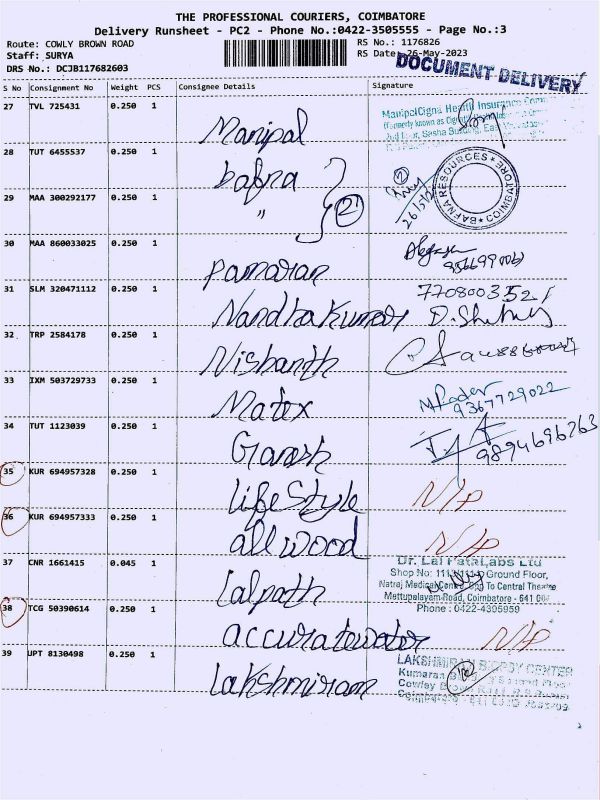 THE PROFESSIONAL COURIERS, COIMBATORE
Delivery Runsheet - PC2 - Phone No.:0422-3505555 - Page No.:3
Route: COWLY BROWN ROAD RS No.: 1176826
Staff: SURYA RS Date: 26-May-2023
DRS No.: DCJB117682603
DOCUMENT DELIVERY
S No Consignment No Weight PCS Consignee Details Signature
27 TVL 725431 0.250 1 Manipal
ManipalCigna Health Insurance
28 TUT 6455537 0.250 1 bafna
BAFNA RESOURCES * COIMBATORE *
29 MAA 300292177 0.250 1 〃 2
30 MAA 860033025 0.250 1 Pamaran
31 SLM 320471112 0.250 1 Nandhakumar 770800352
32 TRP 2584178 0.250 1 Nishanth
33 IXM 503729733 0.250 1 Matex 9367729022
34 TUT 1123039 0.250 1 Ganesh 9894696263
35 KUR 694957328 0.250 1 life style N/P
36 KUR 694957333 0.250 1 all wood N/P
37 CNR 1661415 0.045 1 Lalpath
Dr. Lal PathLabs Ltd
Shop No: Ground Floor,
Natraj Medical To Central Theatre
Mettupalayam Road, Coimbatore - 641
Phone : 0422-4395959
38 TCG 50390614 0.250 1 accuratewater N/P
39 UPT 8130498 0.250 1 Lakshmiram
LAKSHMIRAM BIOPSY CENTER
Kumaran
Cowley Brown
Coimbatore